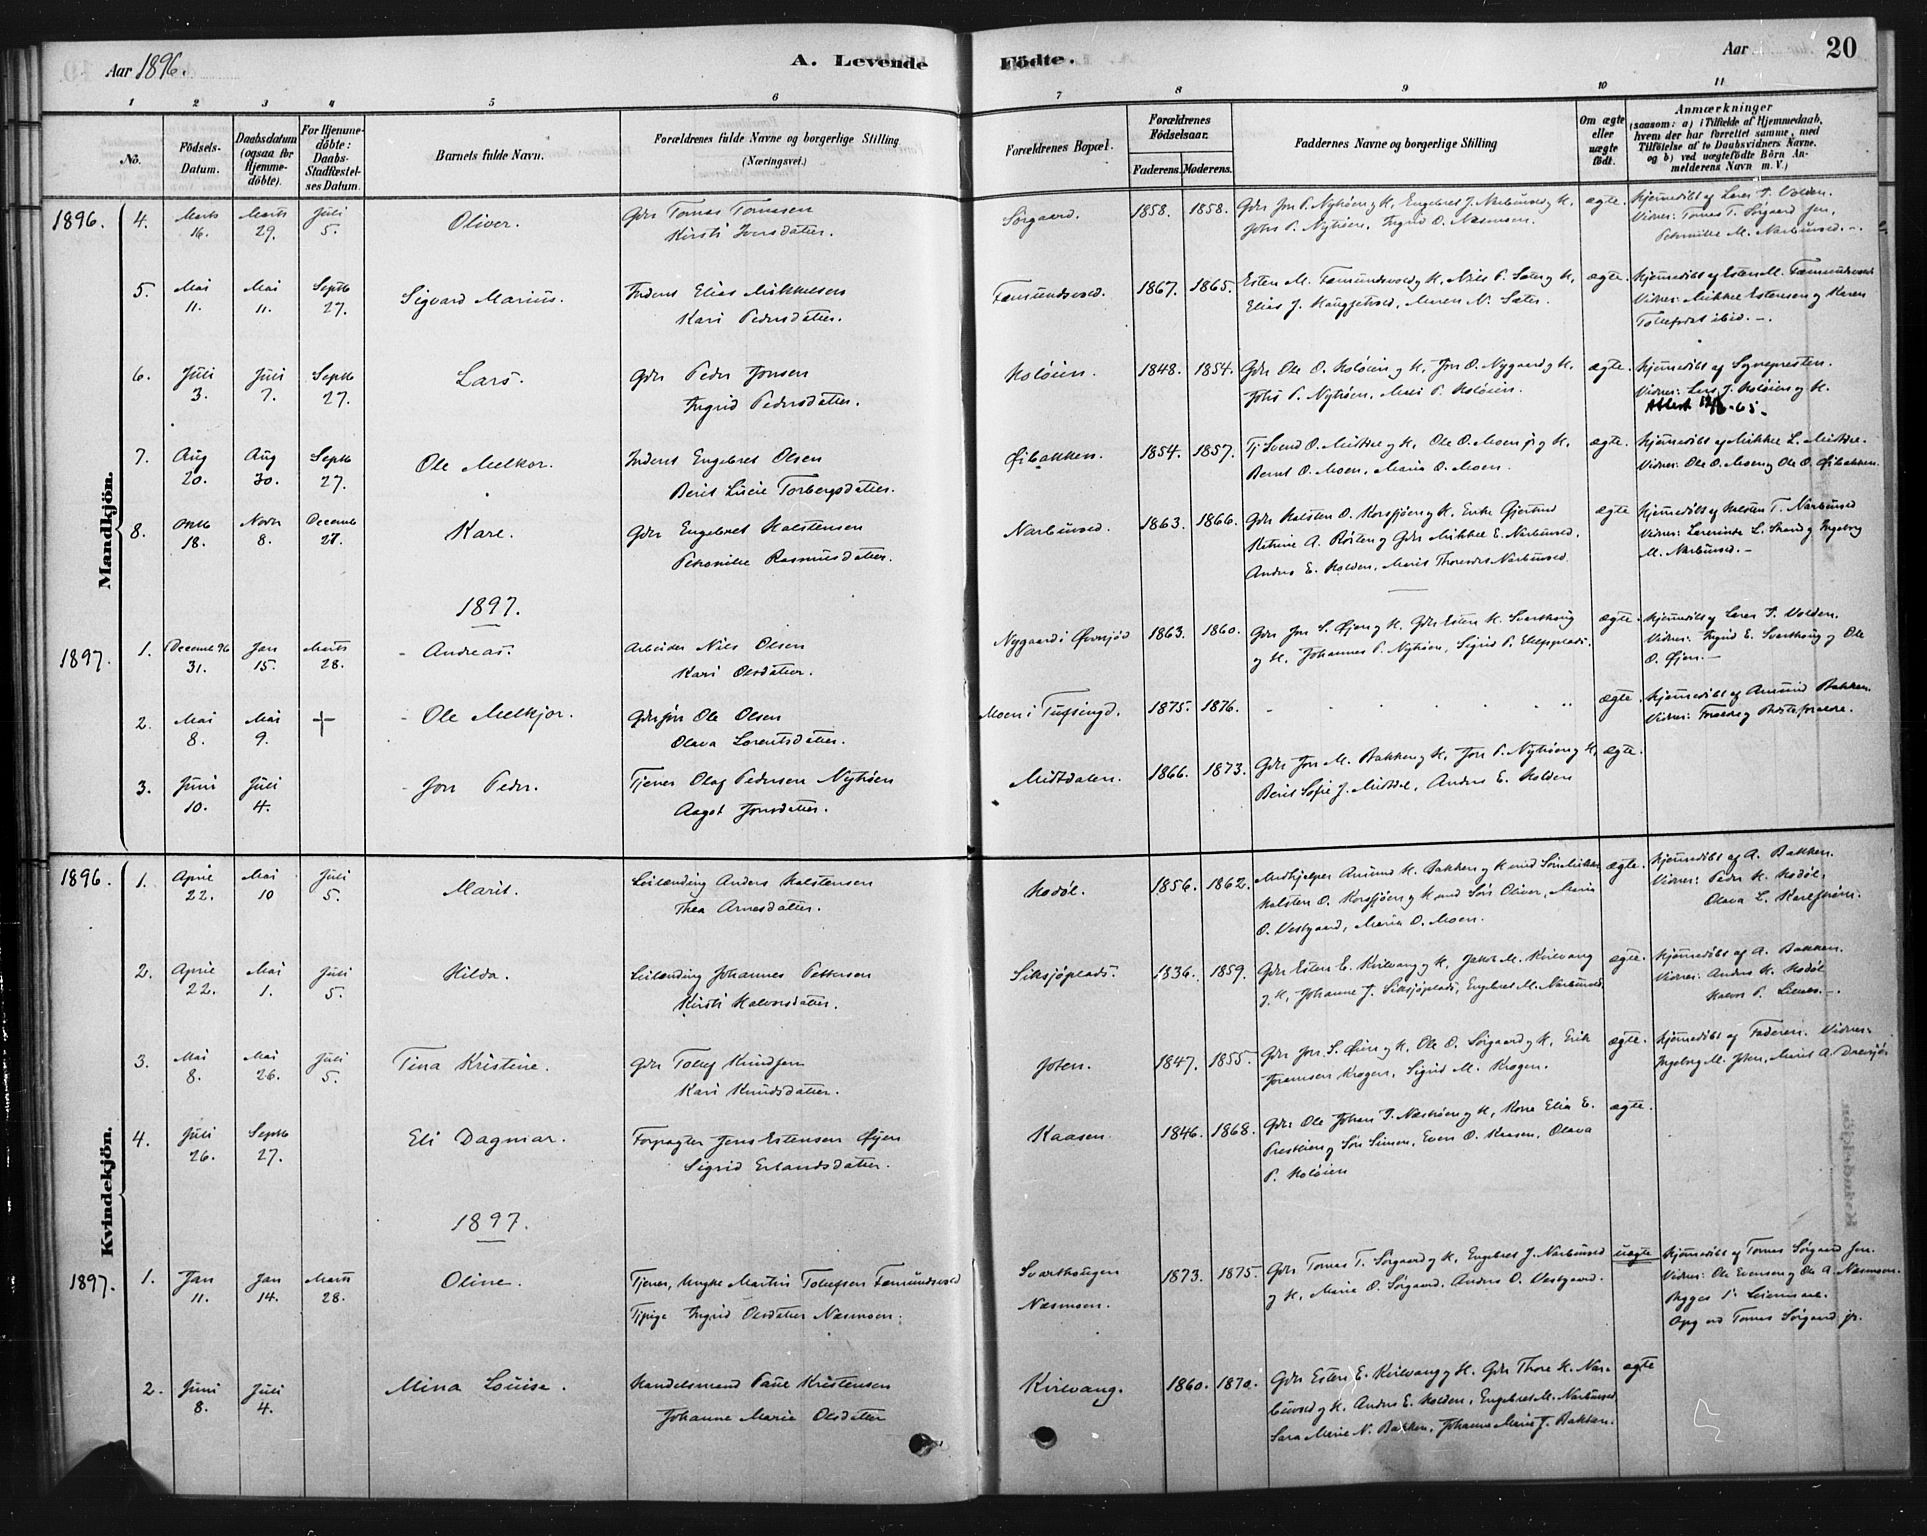 Aar 1896.
A. Levende
Födte.
Aar
20
1 2 3 4 5 6 7 8 9 10 11
No.
Födsels-
Datum.
Daabsdatum
(ogsaa for
Hjemme-
döbte).
For Hjemme-
döbte:
Daabs-
Stadfæstel-
ses Datum.
Barnets fulde Navn.
Forældrenes fulde Navne og borgerlige Stilling
(Næringsvei.)
Forældrenes Bopæl.
Forældrenes
Födselsaar.
Faderens. Moderens.
Faddernes Navne og borgerlige Stilling
Om ægte
eller
uægte
födt.
Anmærkninger
(saasom: a) i Tilfælde af Hjemmedaab,
hvem der har forrettet samme, med
Tilföielse af to Daabsvidners Navne.
og b) ved uægtefödte Börn An-
melderens Navn m. V.)
Mandkjön.
1896. 4. Marts 16. Marts 29. Juli 5. Oliver. Gdr Tomas Tomasen
Kirsti Iversdatter.
Sørgaard. 1858. 1858. Gdr Jon P. Nyhøen og K, Engebret J. Narbuvol og K,
Johs P. Nyhøen, Ingrid O. Næsmoen.
ægte. Hjemmedøbt af Lars T. Volden.
Vidner: Tomas T. Sørgaard jun,
Petronille M. Narbuvold.
5. Mai 11. Mai 11. Septb 27. Sigvard Marius. Inderst Elias Mikkelsen
Kari Pedersdatter.
Fæmundsvold. 1867. 1865. Esten M. Fæmundsvold og K, Nils P. Sæter og K,
Elias J. Haugsetvold, Maren N. Sæter.
ægte. Hjemmedøbt af Esten M. Fæmundsvold
Vidner: Mikkel Estensen og Karen
Tollefsdat ibid.
6. Juli 3. Juli 7. Septb 27. Lars. Gdr Peder Jonsen
Ingrid Pedersdatter.
Koløien. 1848. 1854. Gdr Ole O. Koløien og K, Jon O. Nygaard og K,
Johs P. Nyhøen, Mari P. Koløien.
ægte. Hjemmedøbt af Sognepresten.
Vidner: Lars J. Koløien og K.
Attest
7. Aug 20. Aug 30. Septb 27. Ole Melkor. Inderst Engebret Olsen
Berit Lucie Torbergsdatter.
Øibakken. 1854. 1857. Tj Svend O. Mitdal og K, Ole O. Moen jr og K,
Bernt O. Moen, Maria O. Moen.
ægte. Hjemmedøbt af Mikkel L. Mitdal.
Vidner: Ole O. Moen og Ole O. Øibakken.
8. Oktb 18. Novbr 8. Decemb 27. Kare. Gdr Engebret Halstensen
Petronille Rasmusdatter.
Narbuvold. 1863. 1866. Gdr Halsten O. Korssjøen og K, Enke Gjertrud
Katrine A. Røsten og Gdr Mikkel E. Narbuvold,
Anders E. Holden, Marit Thoresdt Narbuvold.
ægte Hjemmedøbt af Halsten T. Narbuvold
Vidner: Lovrinda L. Strand og Ingeborg
M. Narbuvold.
1897.
1897. 1. Decemb 96 31. Jan 15. Marts 28. Andreas. Arbeider Nils Olsen
Kari Olsdatter.
Nygaard i Øvrsjød 1863. 1860. Gdr Jon S. Øien og K, Gdr Esten H. Svarthaug
og K, Johannes P. Nyhøen, Sigrid P.
ægte. Hjemmedøbt af Lars T. Volden.
Vidner: Ingrid E. Svarthaug og Ole
O. Øien.
2. Mai 8. Mai 9. † Ole Melkjor. Gdrsøn Ole Olsen
Olava Lorentsdatter.
Moen i Tufsingd. 1875. 1876.
ægte. Hjemmedøbt af Amund Bakken.
Vidner: Forældre og Bedsteforældre.
3. Juni 10. Juli 4. Jon Peder. Tjener Olaf Pedersen Nyhøen
Aagot Jonsdatter.
Mitdalen. 1866. 1873. Gdr Jon M. Bakken og K, Jon P. Nyhøen og K,
Berit Sofie J. Mitdal, Anders E. Holden
ægte.
Kvindekjön.
1896. 1. April 22. Mai 10 Juli 5. Marit. Leilænding Anders Halstensen
Thea Arnesdatter.
Hodøl. 1856. 1862. Medhjelper Amund H. Bakken og K med Søn Mikkel
Halsten O. Korssjøen og K med Søn Oliver, Marie
O. Vestgaard, Maria O. Moen.
ægte. Hjemmedøbt af A. Bakken.
Vidner: Peder H. Hodøl,
Olava L. Karlstrøm.
2. April 22. Mai 1. Juli 5. Hilda. Leilænding Johannes Pettersen
Kirsti Halvorsdatter.
Siksjøplads. 1836. 1859. Gdr Esten E. Kvilvang og K, Jakob M. Kvilvang
og K, Johanne J. Siksjøplads, Engebret M. Narbuvold
ægte. Hjemmedøbt af A. Bakken.
Vidner: Anders H. Hodøl
Halvor P.
3. Mai 8. Mai 26. Juli 5. Tina Kristine. Gdr Tollef Knudsen
Kari Knudsdatter.
Joten. 1847. 1855. Gdr Jon S. Øien og K, Ole O. Sørgaard og K, Erik
Joramsen Krogen, Sigrid M. Krogen.
ægte. Hjemmedøbt af Faderen. Vidner:
Ingeborg M. Joten, Marit A. Dalsjø.
4. Juli 26. Septb 27. Eli Dagmar. Forpagter Jens Estensen Øien
Sigrid Erlandsdatter.
Kaasen. 1846. 1868. Gdr Ole Johan J. Næshøen og K, Kone Elia E.
Prestøien og Søn Simen, Even O. Kaasen, Olava
P. Koløien
ægte.
1897.
1897. 1. Jan 11. Jan 14. Marts 28. Oline. Tjener, Ungkr Martin Tollefsen Fæmundsvold
Tjpige Ingrid Olsdatter Næsmoen.
Svarthaugen
Næsmoen.
1873. 1875. Gdr Tomas T. Sørgaard og K, Engebret J. Narbuvold
og K, Marie O. Sørgaard, Anders O. Vestgaard.
uægte Hjemmedøbt af Tomas Sørgaard Jun.
Vidner: Ole Evensen og Ole A. Næsmoen.
Begges 1ste Leiermaal.
Opg ved Tomas Sørgaard jr.
2. Juni 8. Juli 4. Mina Louise. Handelsmand Paul Kristensen
Johanne Marie Olsdatter
Kvilvang. 1860. 1870. Gdr Esten E. Kvilvang og K, Gdr Thore H. Nar-
buvold og K, Anders E. Holden, Engebret M. Narbuvold,
Sara Marie N. Bakken, Johanne Marie J. Bakken.
ægte